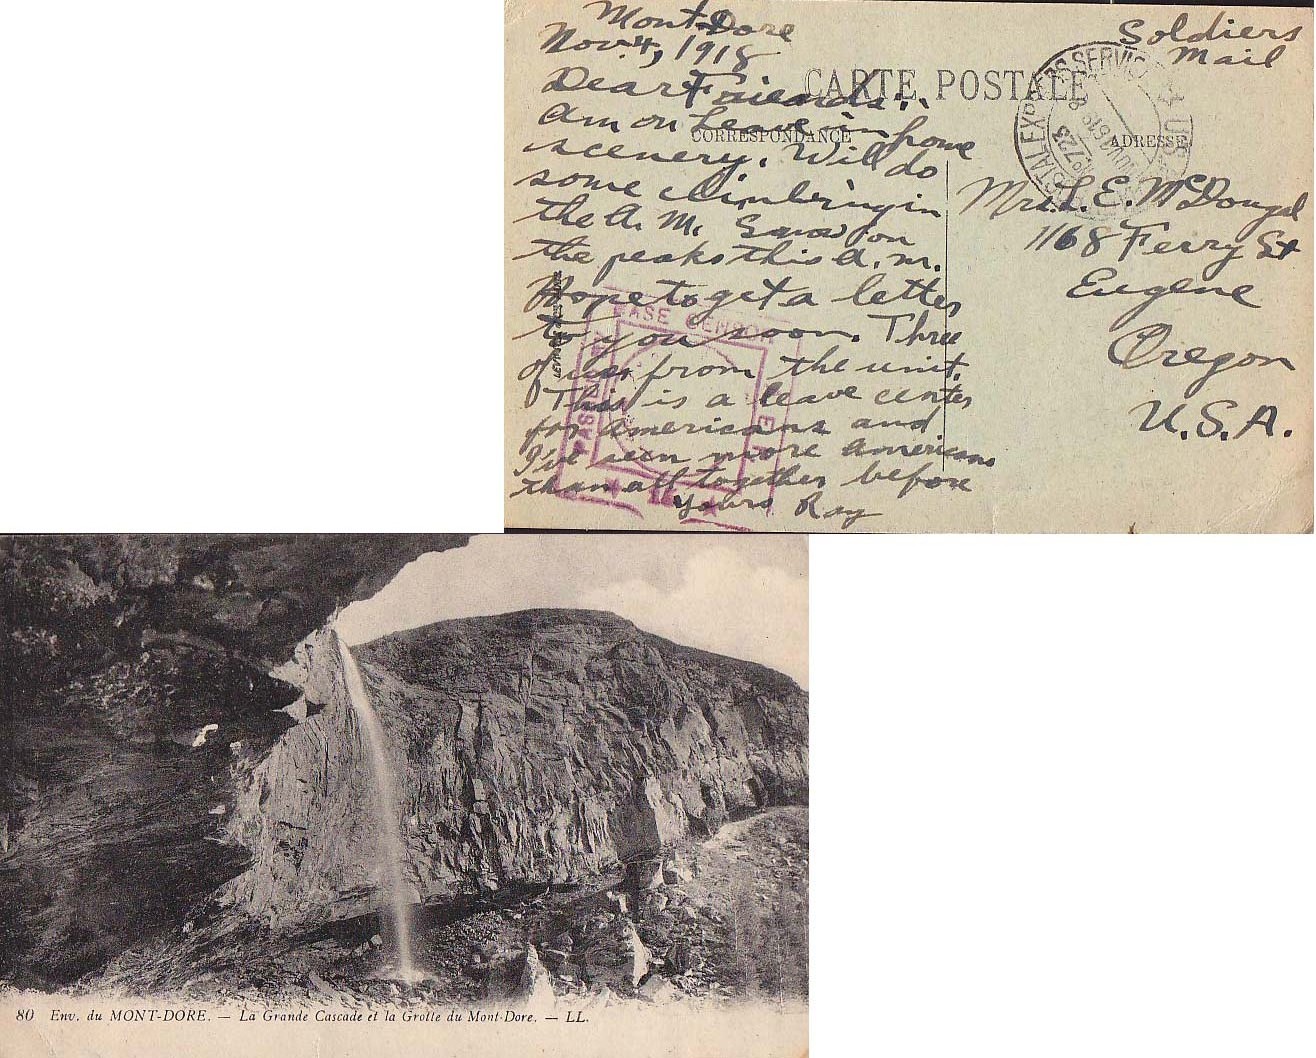 Mont-Dore
Nov. 4, 1918
Dear Friends:
Am on Leave in home
scenery. Will do
some climbing in
the A. M. Snow on
the peaks this a. m.
Hope to get a letter
to you soon. Three
of us from the unit.
This is a leave center
for Americans and
I've seen more Americans
than all together before
Yours Ray
Soldiers
Mail
CARTE POSTALE
CORRESPONDANCE
ADRESSE
Mrs. L. E. McDougal
1168 Ferry St
Eugene
Oregon
U.S.A.
POSTAL EXPRESS SERVICE
No. 723
BASE CENSOR
80 Env. du MONT-DORE. — La Grande Cascade et la Grotte du Mont-Dore. — LL.